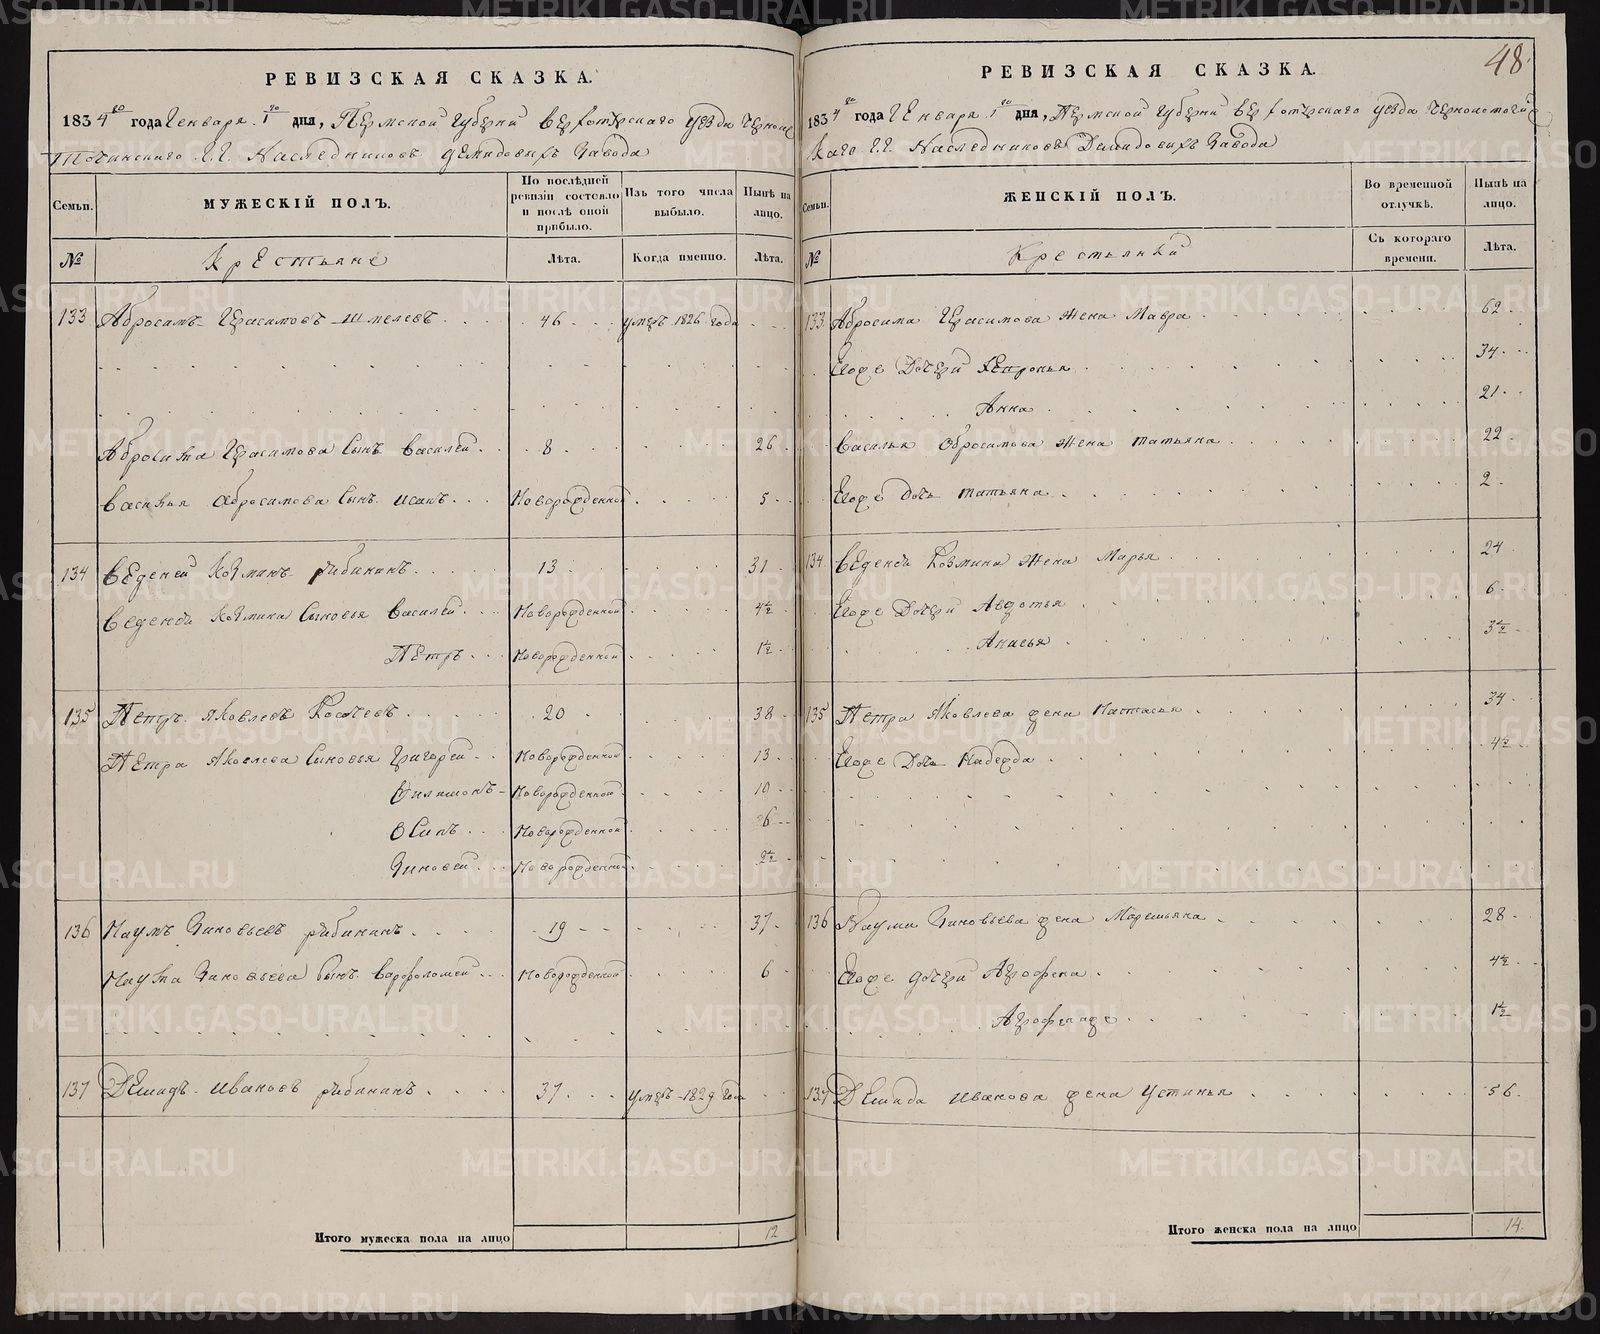 48.
РЕВИЗСКАЯ СКАЗКА.
1834 го года Генваря 1 го дня, Пермской Губернии Верхотурского уезда Черноис
точинского Г.Г. Наследников Демидовых Завода
Семьи. МУЖЕСКІЙ ПОЛЪ. По послѣдней ревизіи состояло и послѣ оной прибыло. Изъ того числа выбыло. Нынѣ на лицо.
№ Крестьяне Лѣта. Когда именно. Лѣта.
133 Абросимъ Герасимовъ Шмелевъ 46 умеръ 1826 года
Абросима Герасимова Сынъ Василей 8 26
Василья Абросимова Сынъ Исакъ Новорожденной 5
134 Веденей Козминъ Рябининъ 13 31
Веденея Козмина Сыновья Василей Новорожденной 4½
Петръ Новорожденной 1½
135 Петръ Яковлевъ 20 38
Петра Яковлева Сыновья Григорей Новорожденной 13
Филимонъ Новорожденной 10
Осипъ Новорожденной 6
Зиновей Новорожденной 2½
136 Наумъ Зиновьевъ Рябининъ 19 37
Наума Зиновьева Сынъ Варфоломей Новорожденной 6
137 Демидъ Ивановъ Рябининъ 37 умеръ 1829 года
Итого мужеска пола на лицо 12
РЕВИЗСКАЯ СКАЗКА.
1834 го года Генваря 1 го дня, Пермской Губернии Верхотурского уезда Черноисточинс
каго Г.Г. Наследников Демидовых Завода
Семьи. ЖЕНСКІЙ ПОЛЪ. Во временной отлучкѣ. Нынѣ на лицо.
№ Крестьянки Съ котораго времени. Лѣта.
133 Абросима Герасимова жена Мавра 62
Егоже Дочери Хевронья 34
Анна 21
Василья Обросимова жена Татьяна 22
Егоже Дочь Татьяна 2
134 Веденея Козмина жена Марья 24
Егоже Дочери Авдотья 6
Анисья 3½
135 Петра Яковлева жена Настасья 34
Егоже Дочь Надежда 4½
136 Наума Зиновьева жена Маремьяна 28
Егоже дочери Агрофена 4½
1½
137 Демида Иванова жена Устинья 56
Итого женска пола на лицо 14
METRIKI.GASO-URAL.RU